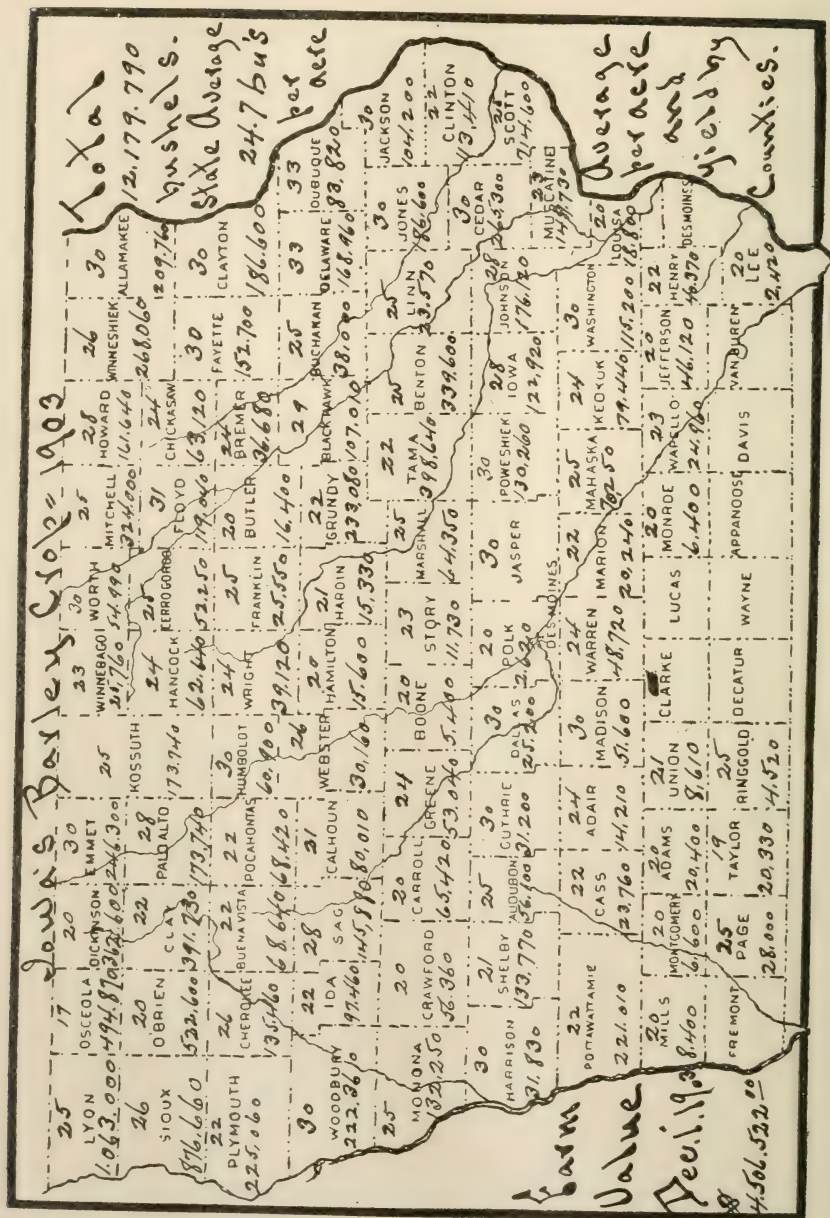 Iowa's Barley Crop - 1903
Total
12,179,790
bushels.
State Average
24.7 bu's
per acre
25
LYON
1,063,000
17
OSCEOLA
494,870
20
DICKINSON
362,600
30
EMMET
246,300
25
KOSSUTH
173,740
23
WINNEBAGO
30
WORTH
54,990
25
MITCHELL
324,000
28
HOWARD
161,640
26
WINNESHIEK
268,060
30
ALLAMAKEE
26
SIOUX
876,660
20
O'BRIEN
522,600
22
CLAY
391,730
28
PALO ALTO
173,740
24
HANCOCK
62,640
25
CERRO GORDO
52,250
31
FLOYD
119,040
24
CHICKASAW
63,120
30
FAYETTE
152,700
30
CLAYTON
186,600
22
PLYMOUTH
225,060
26
CHEROKEE
135,460
22
BUENA VISTA
68,640
22
POCAHONTAS
68,420
30
HUMBOLDT
60,900
24
WRIGHT
39,120
25
FRANKLIN
25,550
20
BUTLER
16,400
24
BREMER
36,680
30
WOODBURY
222,360
22
IDA
97,460
28
SAC
145,880
21
CALHOUN
80,010
26
WEBSTER
30,160
20
HAMILTON
15,600
21
HARDIN
15,330
22
GRUNDY
233,080
29
BLACK HAWK
107,010
25
BUCHANAN
38,000
33
DELAWARE
168,960
33
DUBUQUE
83,820
25
MONONA
132,250
20
CRAWFORD
56,360
20
CARROLL
65,420
24
GREENE
53,040
20
BOONE
5,400
23
STORY
11,730
25
MARSHALL
64,350
22
TAMA
398,640
25
BENTON
339,600
25
LINN
23,570
30
JONES
86,600
30
JACKSON
104,200
22
CLINTON
113,410
30
HARRISON
31,830
21
SHELBY
133,770
25
AUDUBON
56,100
30
GUTHRIE
31,200
30
DALLAS
25,200
20
POLK
2,620
DES MOINES
30
JASPER
30
POWESHIEK
130,260
28
IOWA
122,920
28
JOHNSON
176,120
30
CEDAR
265,300
25
SCOTT
714,600
23
MUSCATINE
149,730
22
POTTAWATTAMIE
221,010
22
CASS
23,760
24
ADAIR
14,210
30
MADISON
51,600
24
WARREN
48,720
22
MARION
20,240
25
MAHASKA
70,250
24
KEOKUK
79,440
30
WASHINGTON
115,200
20
LOUISA
18,800
20
MILLS
8,400
20
MONTGOMERY
61,600
20
ADAMS
20,400
21
UNION
8,610
CLARKE
LUCAS
20
MONROE
6,400
23
WAPELLO
24,960
20
JEFFERSON
46,120
22
HENRY
46,370
DES MOINES
FREMONT
25
PAGE
28,000
19
TAYLOR
20,330
25
RINGGOLD
4,520
DECATUR
WAYNE
APPANOOSE
DAVIS
VAN BUREN
20
LEE
2,420
Farm
Value
Dec. 1. 1903
$
4,506,522.00
Average
per acre
and
yield by
Counties.